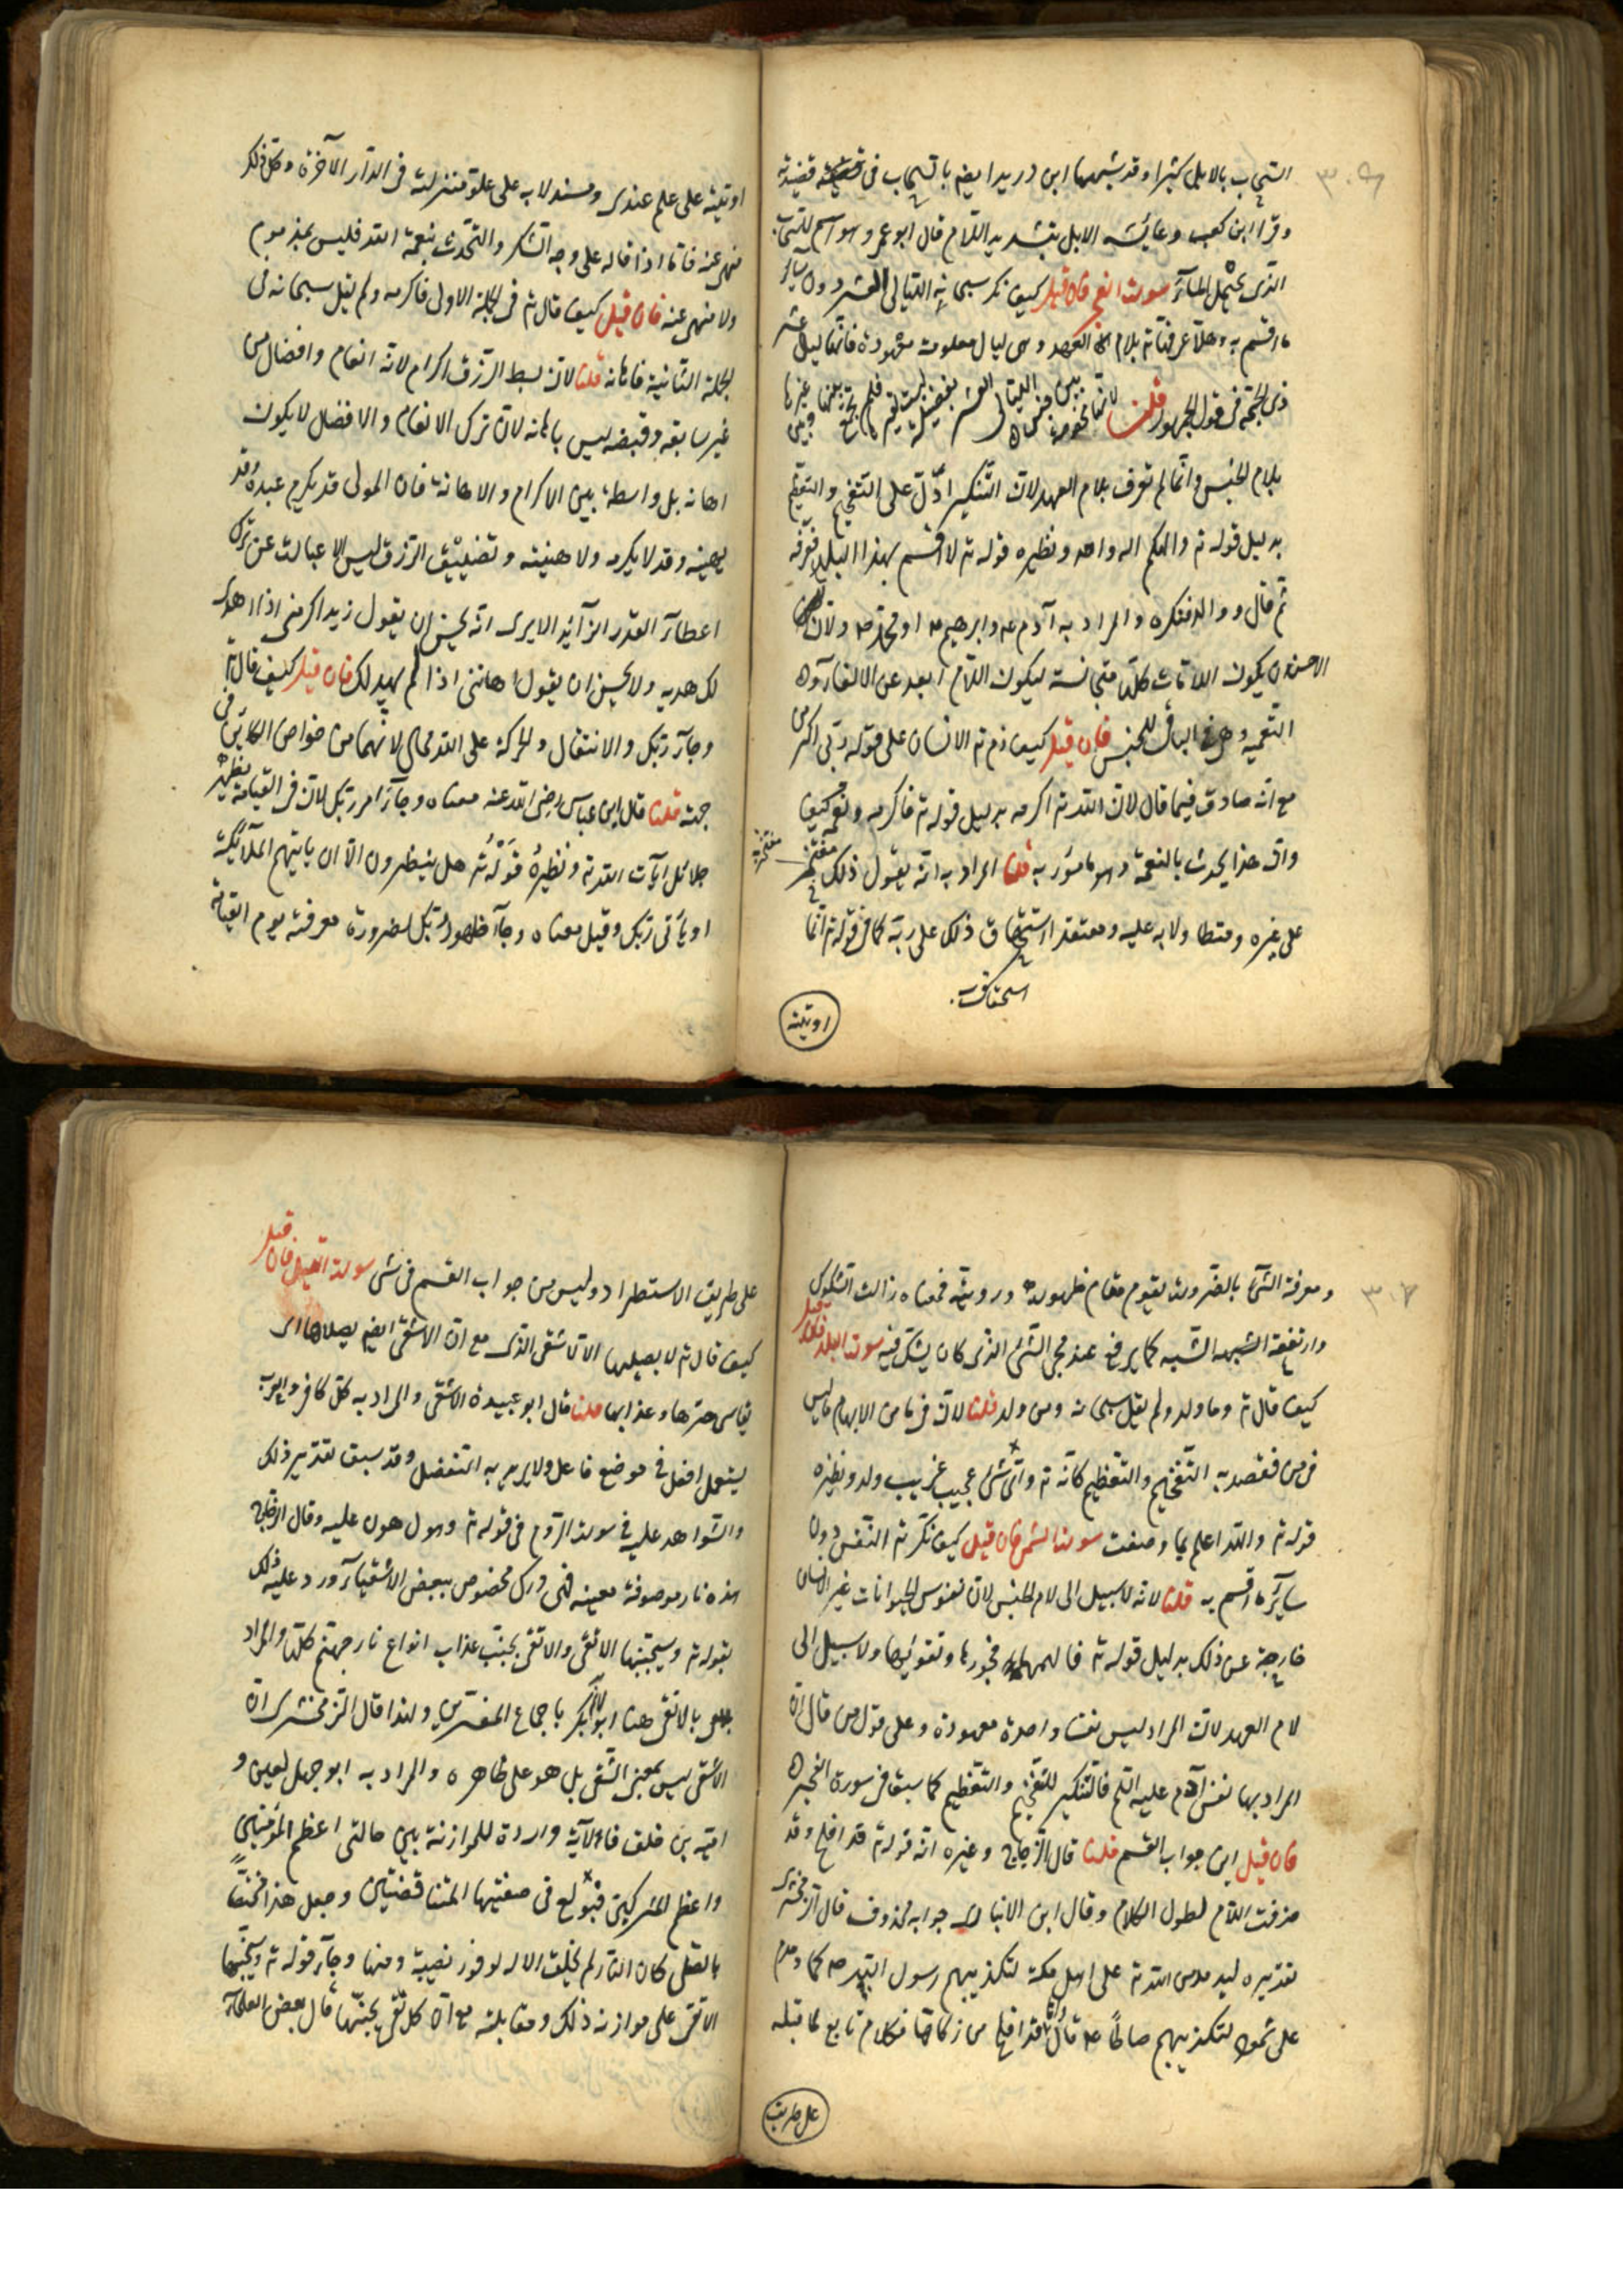 ٣٠٥
السحاب بالابل كثيرا وقد شبهها ابن دريد ايضا بالسحاب فى قصيدته
وقرا ابن كعب وعايشه الابل بتشديد اللام قال ابو عمرو وهو اسم للسحاب
الذى يحمل المآء سورة الفجر فان قيل كيف نكر سبحانه الليالى العشر دون ساير
ما اقسم به وهلا عرفها ته بلام العهد وهى ليال معلومة معهودة فانها ليال عشر
ذى الحجة فى قول الجمهور قلنا لانها مخصوصة من بين جنس الليالى العشر بفضيلة ليست لغيرها فلم تجمع بينها وبين غيرها
بلام الجنس وانما لم تعرف بلام العهد لان التنكير ادل على التفخيم والتعظيم
بدليل قوله ته والهكم اله واحد ونظيره قوله ته لا اقسم بهذا البلد فعرفه
ثم قال ووالد فنكره والمراد به آدم عم وابرهيم عم او محمد صم ولان
الاحسن ان يكون اللامات كلها متجانسة ليكون اللام ابعد عن الالغاز و
التعميه وهى فى الباقى للجنس فان قيل كيف ذم ته الانسان على قوله ربى اكرمن
مع انه صادق فيما قال لان الله ته اكرمه بدليل قوله ته فاكرمه ونعمه كيف
وان هذا يحدث بالنعمة وهو مامور به قلنا المراد به انه يقول ذلك مفتخرا
على غيره ومتطاولا به عليه ومعتقدا استحقاق ذلك على ربه كما فى قوله ته انما
استحقاق
اوتيته
اوتيته على علم عندى ومستدلا به على علو منزلته فى الدار الآخرة وكل ذلك
منهى عنه فاما اذا قاله على وجه الشكر والتحدث بنعمة الله فليس بمذموم
ولا منهى عنه فان قيل كيف قال ته فى الجملة الاولى فاكرمه ولم يقل سبحانه فى
الجملة الثانية فاهانه قلنا لان بسط الرزق اكرام لانه انعام وافضال من
غير سابقه وقبضه ليس باهانه لان ترك الانعام والافضل لا يكون
اهانه بل واسطة بين الاكرام والاهانة فان المولى قد يكرم عبده وقد
يهينه وقد لا يكرمه ولا هينه وتضييق الرزق ليس الا عبارة عن ترك
اعطآء القدر الزآئد الا يرى انه يحسن ان يقول زيد اكرمنى اذا اهدى
لك هديه ولا يحسن ان يقول اهاننى اذا لم يهد لك فان قيل كيف قال ته
وجآء ربك والانتقال والحركة على الله محالى لانهما من خواص الكاين فى
جهة قلنا قال ابن عباس رضى الله عنه معناه وجآء امر ربك لان فى القيامة يظهر
جلائل آيات الله ته ونظيره قوله ته هل ينظرون الا ان ياتيهم الملآئكة
او ياتى ربك وقيل معناه وجآء ظهور ربك لضرورة معرفته يوم القيامة
٣٠٦
ومعرفة الشئ بالضرورة يقوم مقام ظهوره ورويته فمعناه زالت الشكوك
وارتفعة الشبه كما يرفع عند مجى الشئ الذى كان يشك فيه سورة البلد فان قيل
كيف قال ته وما ولد ولم يقل سبحانه ومن ولد قلنا لان فى ما من الابهام ما ليس
فى من فقصد به التفخيم والتعظيم كانه ته واى شئ عجيب غريب ولد ونظيره
قوله ته والله اعلم بما وضعت سورة الشمس فان قيل كيف نكر ته النفس دون
ساير ما اقسم به قلنا لانه لا سبيل الى لام الجنس لان نفوس الحيوانات غير الانسان
خارجة عن ذلك بدليل قوله ته فالهمها فجورها وتقويها ولا سبيل الى
لام العهد لان المراد ليس نفسا واحدة معهودة وعلى قول من قال ان
المراد بها نفس آدم عليه السلم فالتنكير للتفخيم والتعظيم كما سبق فى سورة الفجر
فان قيل اين جواب القسم قلنا قال الزجاج وغيره انه قوله ته قد افلح وقد
حذفت اللام لطول الكلام وقال ابن الانبارى جوابه محذوف قال الزمخشرى
تقديره ليدمدمن الله ته على اهل مكة لتكذيبهم رسول الله صم كما دمدم
على ثمود لتكذيبهم صالحا عم قال واما قد افلح من زكاها فكلام تابع لما قبله
على طريق
على طريق الاستطراد وليس من جواب القسم فى شى سورة الليل فان قيل
كيف قال ته لا يصليها الا الاشقى الذى مع ان الاشقى ايضا يصلاها اى
يقاسى حرها وعذابها قلنا قال ابو عبيدة الاشقى والمراد به كل كافر والعرب
يستعمل افعل فى موضع فاعل ولا يريد به التفضل وقد سبق تقدير ذلك
والشواهد عليه فى سورة الروم فى قوله ته وهو اهون عليه وقال الزجاج
هذه نار موصوفة معينه فهى درك مخصوص ببعض الاشقيآء ورد عليه ذلك
بقوله ته وسيجنبها الاتقى والاتقى يجنب عذاب انواع نار جهنم كلها والمراد
بالاتقى هنا ابو بكر باجماع المفسرين ولهذا قال الزمخشرى ان
الاشقى ليس بمعنى الشقى بل هو على ظاهره والمراد به ابو جهل لعين و
اميه بن خلف فالآية واردة للموازنة بين حالتى اعظم المؤمنين
واعظم المشركين فبولغ فى صفتيهما المتناقضتين وجعل هذا مختصا
بالصلى كان النار لم يخلق الا له لوفور نصيبه ومنها وجآء قوله ته وسيجنبها
الاتقى على موازنه ذلك ومقابلته مع ان كل تقى يجنبها قال بعض العلمآء